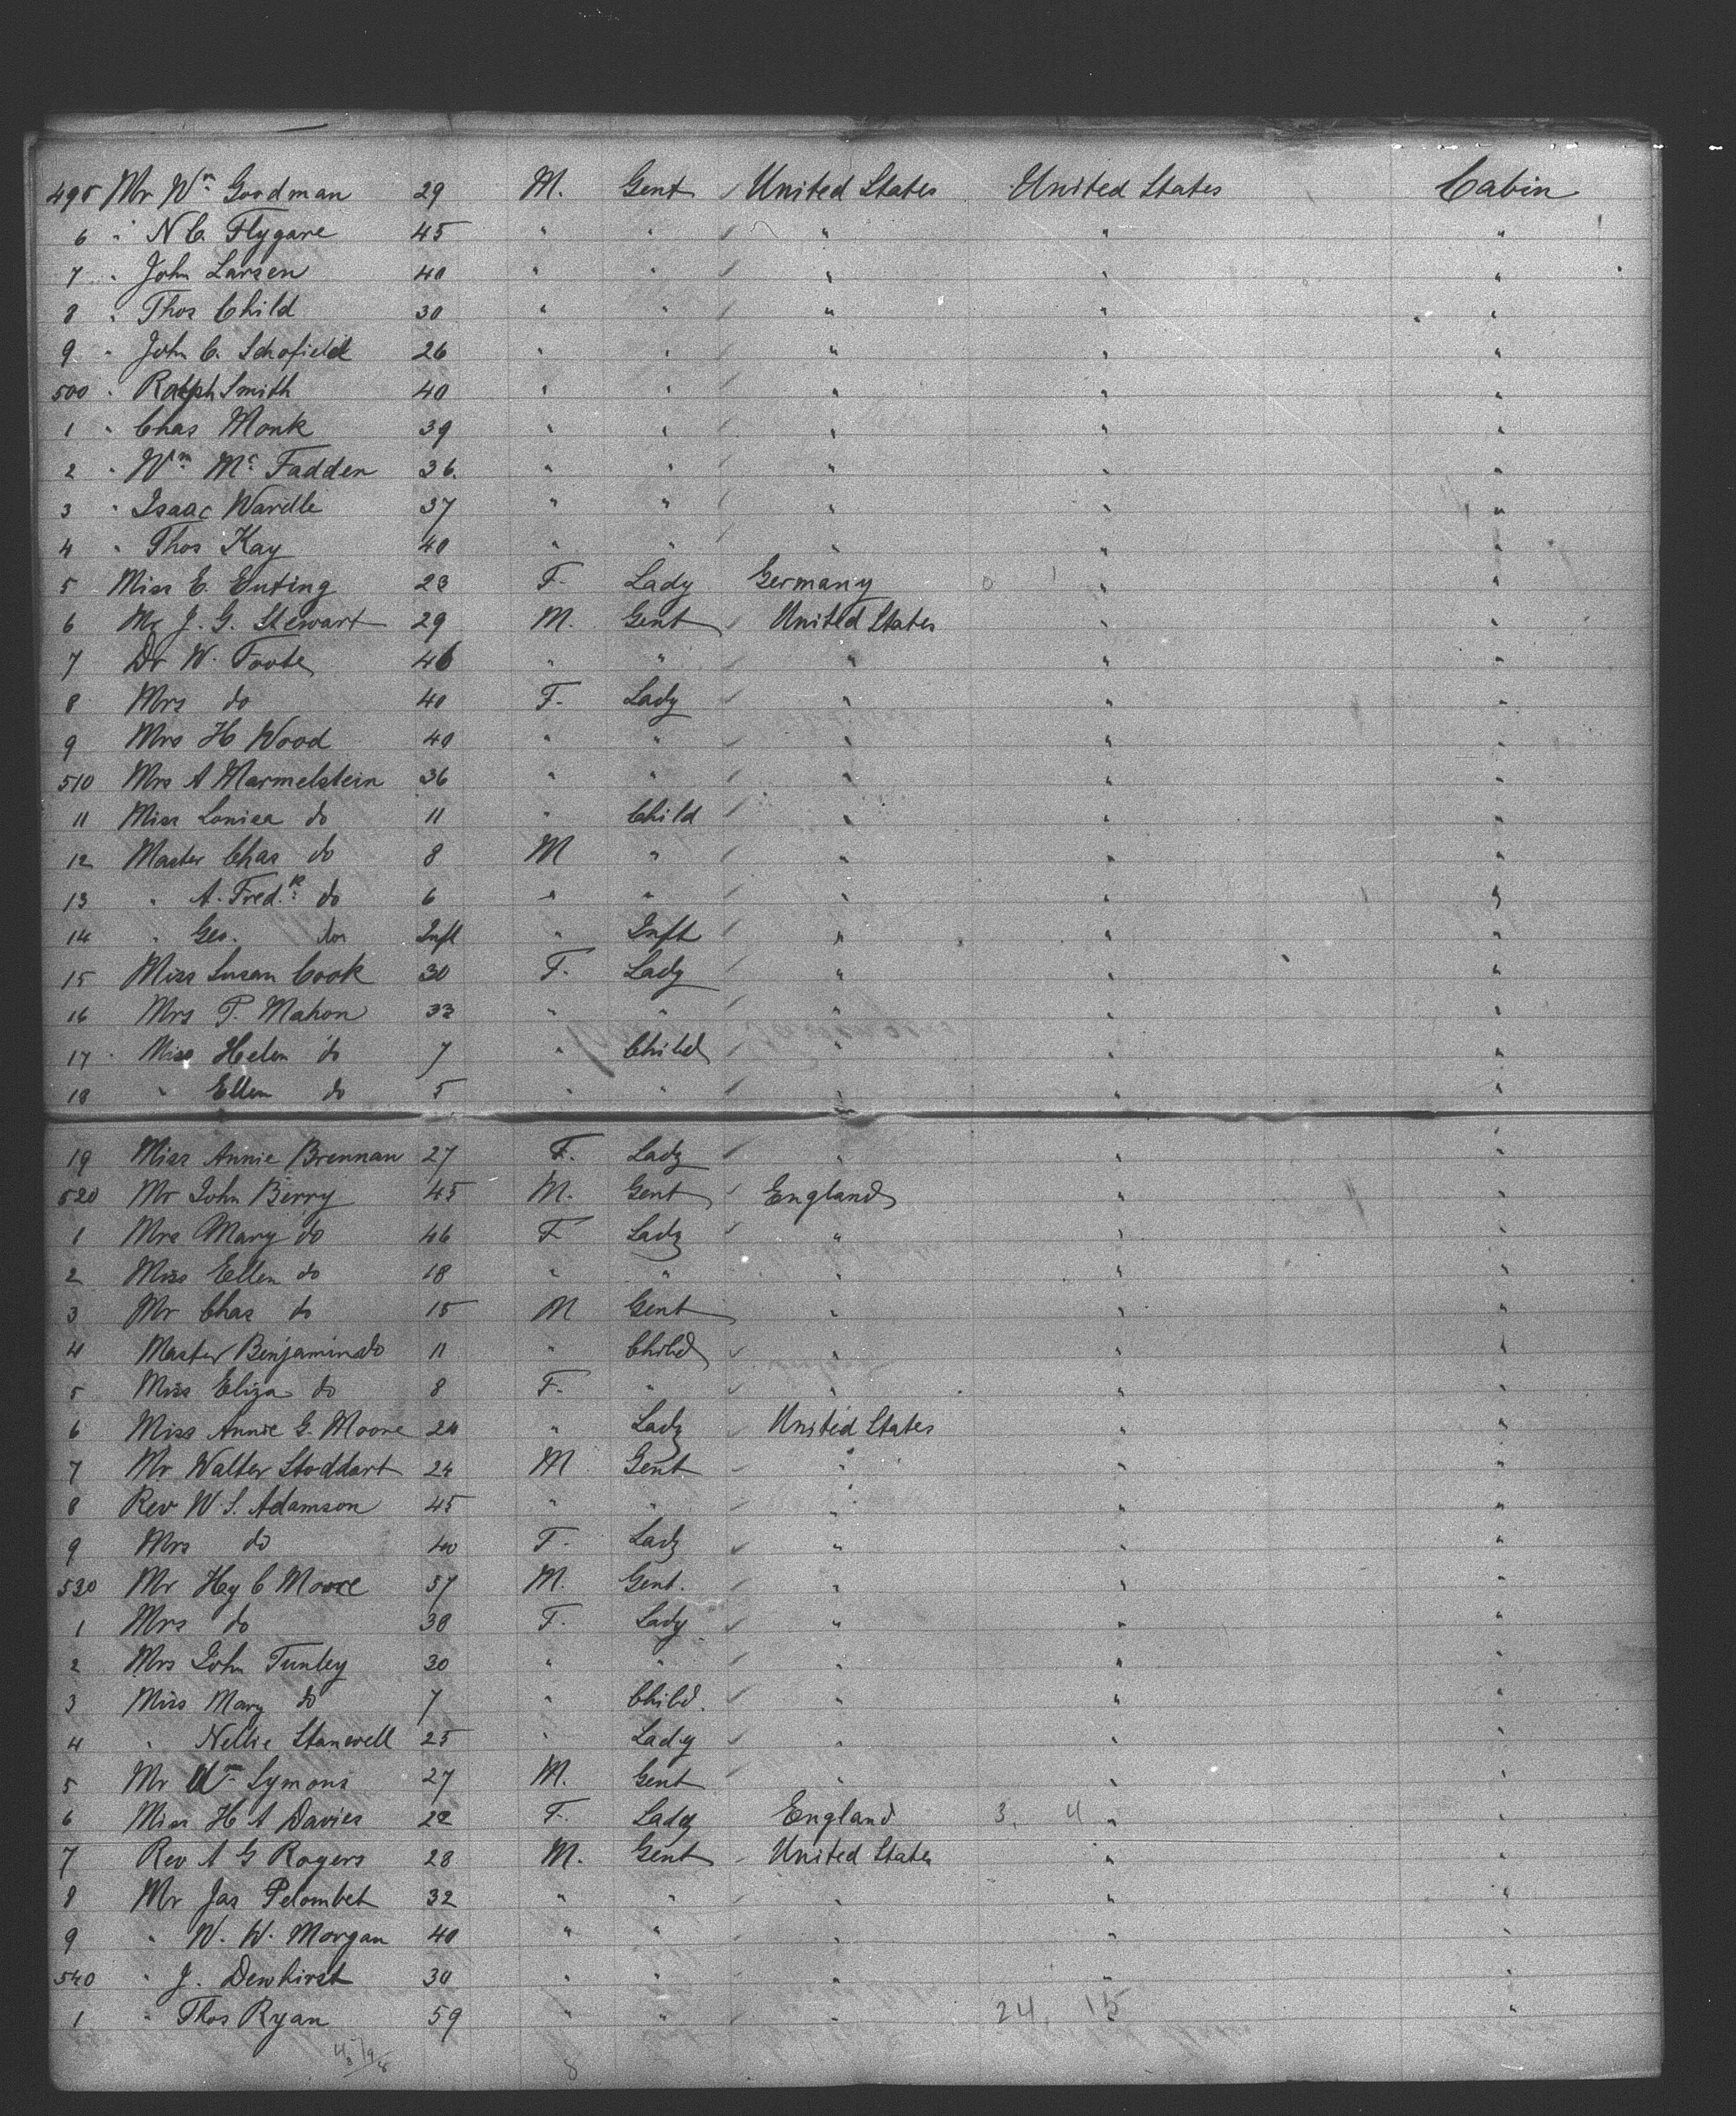 495 Mr Wm Goodman 29 M. Gent United States United States Cabin
6 " N C. Flygare 45 " " " " "
7 " John Larsen 40 " " " " "
8 " Thos Child 30 " " " " "
9 " John C. Schofield 26 " " " " "
500 " Ralph Smith 40 " " " " "
1 " Chas Monk 39 " " " " "
2 " Wm Mc Fadden 36. " " " " "
3 " Isaac Wardle 37 " " " " "
4 " Thos Kay 40 " " " " "
5 Miss E. Enting 23 F. Lady Germany 0 1 " "
6 Mr J. G. Stewart 29 M. Gent United States " "
7 Dr W. Foote 46 " " " " "
8 Mrs do 40 F. Lady " " "
9 Mrs H Wood 40 " " " " "
510 Mrs A Marmelstein 36 " " " " "
11 Miss Louisa do 11 " Child " " "
12 Master Chas do 8 M " " " "
13 " A. Fredk do 6 " " " " "
14 " Geo. do Inft " Inft " " "
15 Miss Susan Cook 30 F. Lady " " "
16 Mrs P. Mahon 33 " " " " "
17 Miss Helen do 7 " Child " " "
18 " Ellen do 5 " " " " "
19 Miss Annie Brennan 27 F. Lady " " "
520 Mr John Berry 45 M. Gent England " "
1 Mrs Mary do 46 F Lady " " "
2 Miss Ellen do 18 " " " " "
3 Mr Chas do 15 M Gent " " "
4 Master Benjamin do 11 " Child " " "
5 Miss Eliza do 8 F. " " " "
6 Miss Annie G. Moore 20 " Lady United States " "
7 Mr Walter Stoddart 24 M Gent " " "
8 Rev W. S. Adamson 45 " " " " "
9 Mrs do 40 F. Lady " " "
530 Mr Hy C Moore 57 M. Gent. " " "
1 Mrs do 38 F. Lady " " "
2 Mrs John Tunley 30 " " " " "
3 Miss Mary do 7 " Child. " " "
4 " Nellie Stanwell 25 " Lady " " "
5 Mr Wm Symons 27 M. Gent " " "
6 Miss H A Davies 22 F. Lady England 3. 4 " "
7 Rev A G Rogers 28 M. Gent United States " "
8 Mr Jas Pelombet 32 " " " " "
9 " W. W. Morgan 40 " " " " "
540 " J. Dewhirst 30 " " " " "
1 " Thos Ryan 59 " " " 24. 15 " "